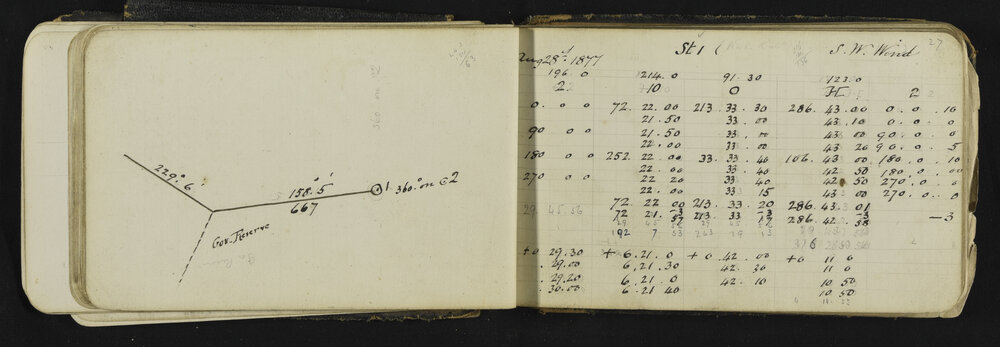 229° 6'
158° 5'
667
1 360° on @ 2
Gov. Reserve
St 1
S. W. Wind
27
Aug 28th 1877
196. 0 1214. 0 91. 30 123. 0
2 10 0 H 2
0. 0. 0 72. 22. 00 213. 33. 30 286. 43. 00 0. 0. 10
21. 50 33. 00 43. 10 0. 0. 0
90 0 0 21. 50 33. 00 43 00 90. 0. 0
22. 00 33. 00 43 20 90. 0. 5
180 0 0 252 22. 00 33. 33. 40 106. 43. 00 180. 0. 10
22. 00 33. 40 42. 50 180. 0. 00
270 0 0 22 20 33. 40 42. 50 270. 0. 0
22. 00 33. 15 43. 00 270. 0. 0
72. 22 00 213. 33. 20 286. 43. 01
29. 45. 56 72 21. 57 213. 33 17 286. 42. 58 -3
192 7 53 243 19 13
+0 29. 30 + 6. 21. 0 + 0. 42. 00 +0 11 0
. 29. 00 6. 21. 30 42. 30 11 0
. 29. 20 6. 21. 0 42. 10 10 50
. 30. 00 6. 21 40 10 50